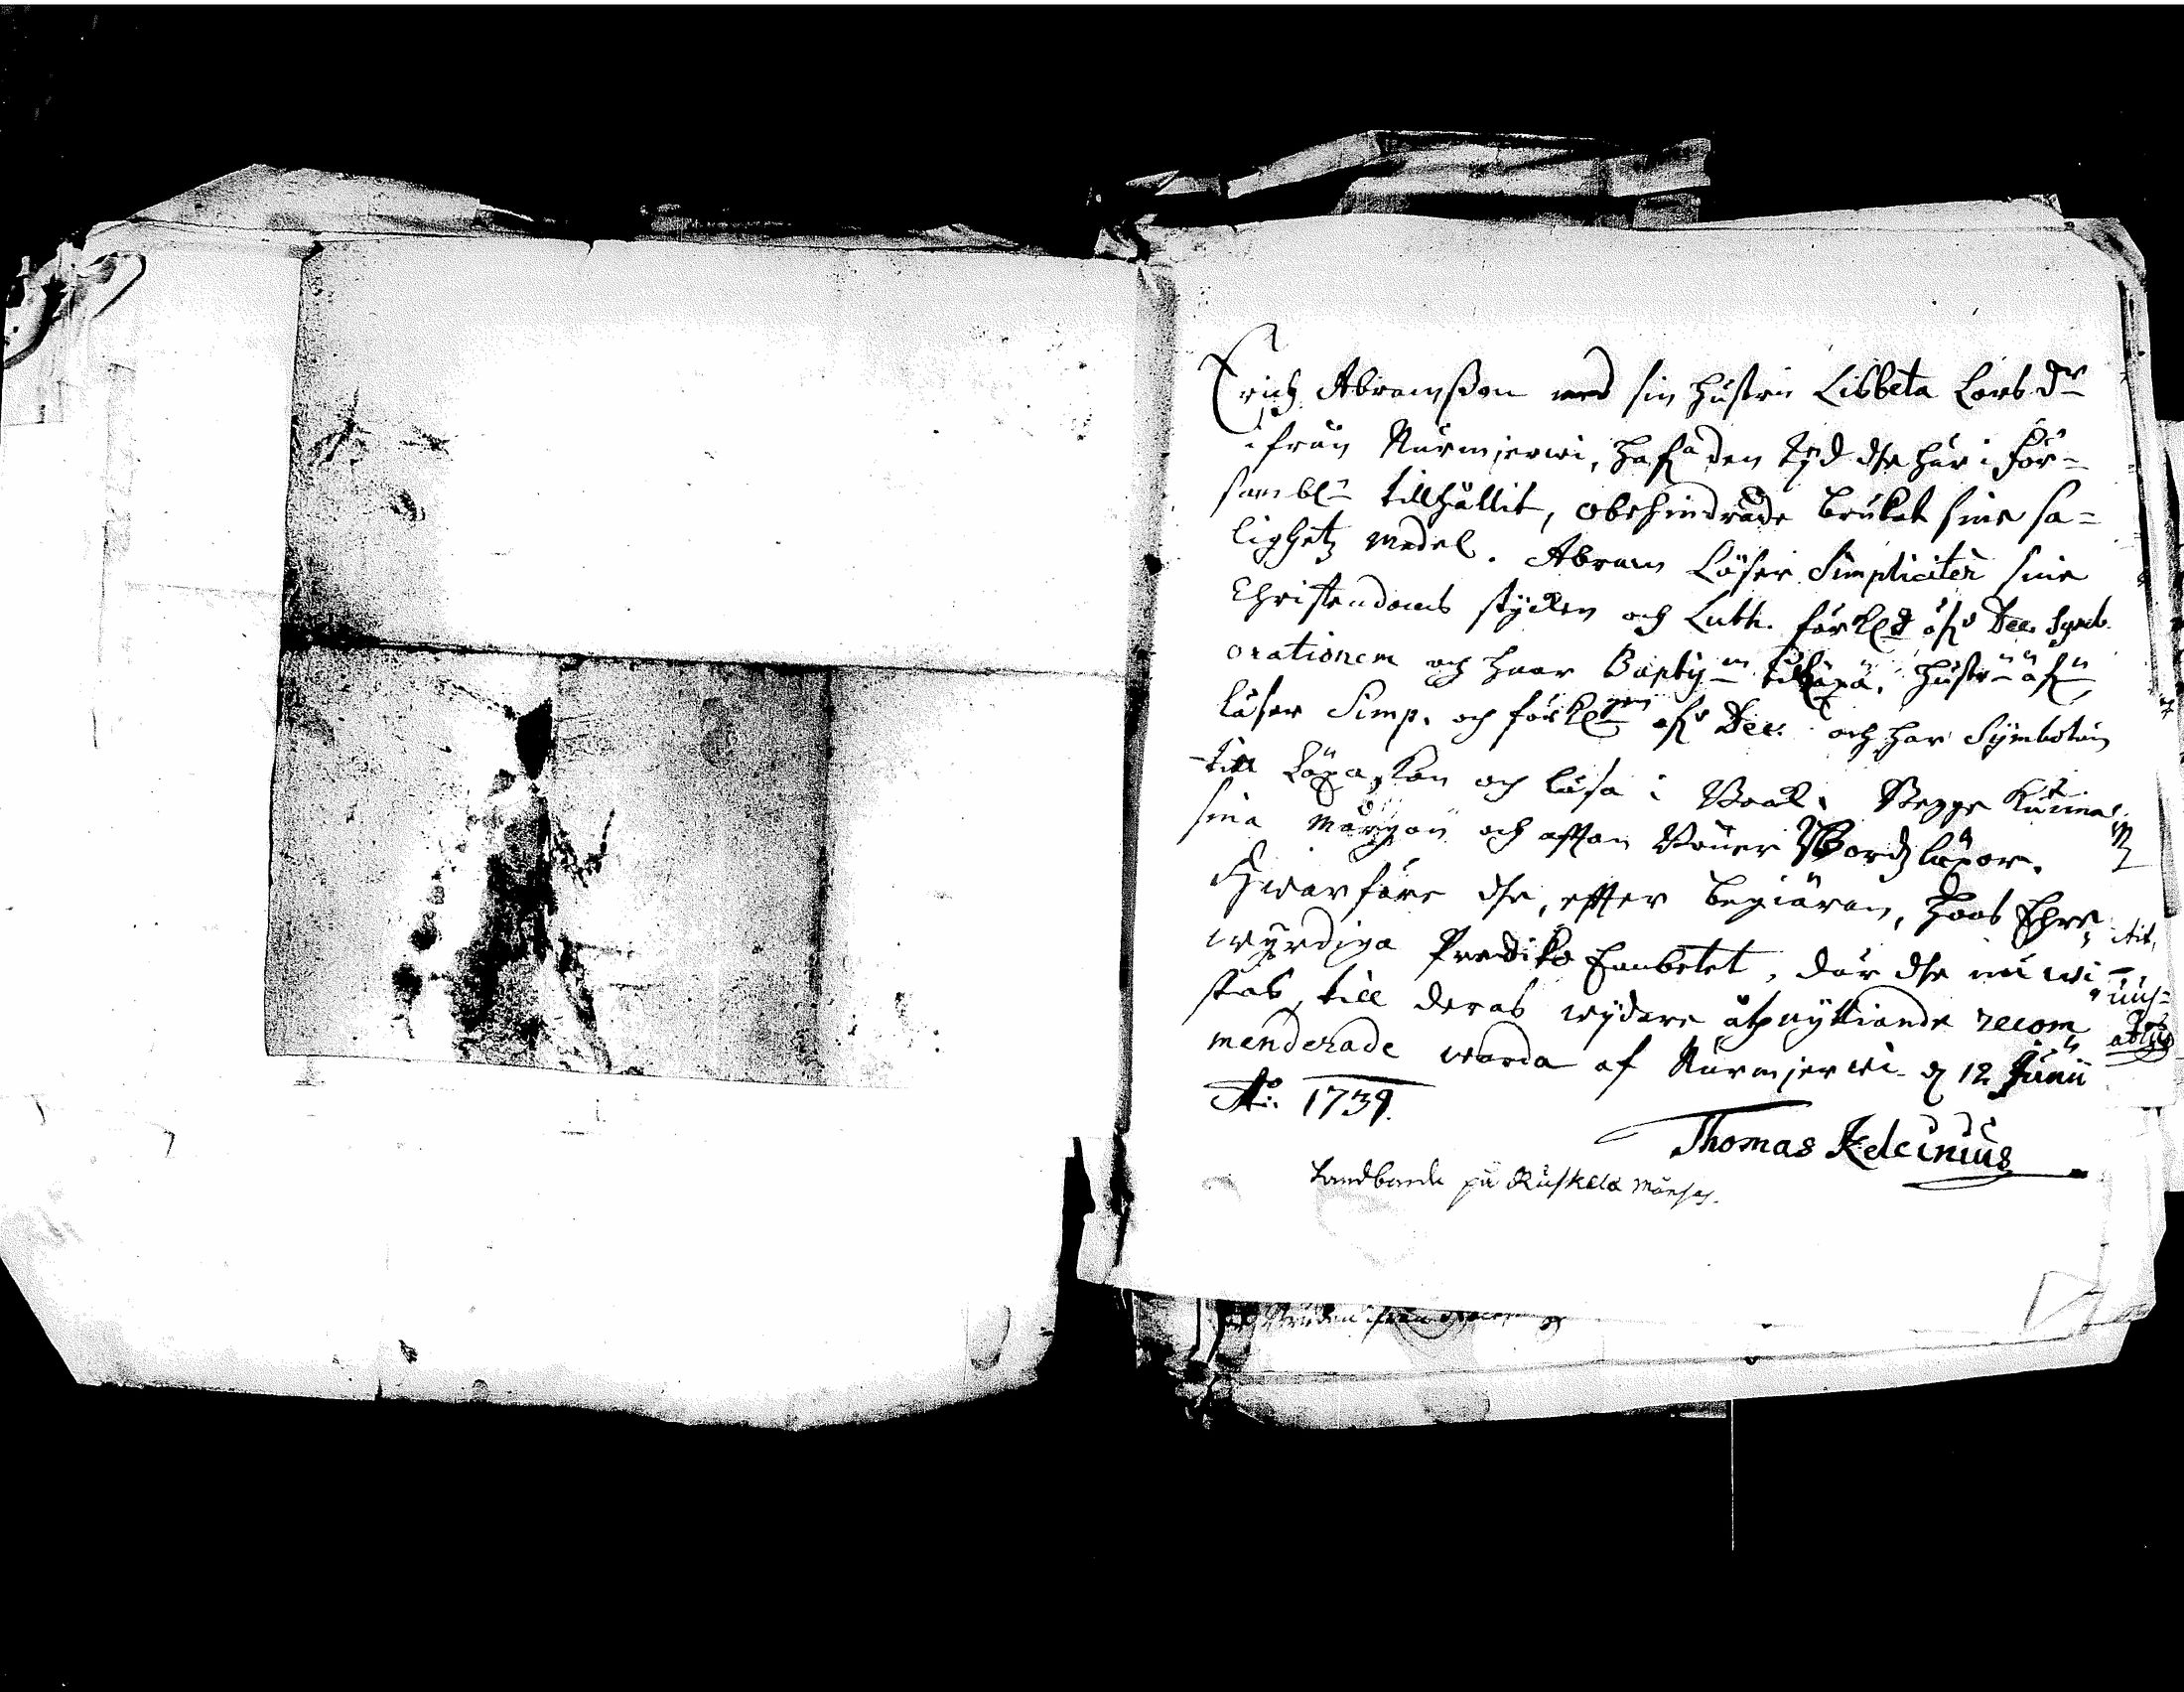 Erich Abramsson med sin hustru Lisbeta Lars dr
ifrån Nurmjerwi, hafa den tijd dhe här i för-
sambln tillhållit, obehindrade brukat sine sa-
lighetz medel. Abram läser Simpliciter sine
Christendoms stycken och Luth. förkl öfr Dec. Symb.
orationem och haar Bapt till läxa, hustrun äfn
läser Simp. och förkl öfr Dec. och har Symbolum
till läxa, kan och läsa i Book. Begge kunna
sina morgon och affton Böner Bordz läxor.
Hwarföre dhe, effter begiäran, hoos Ehre
wyrdiga Predikо Embetet, där dhe nu wi
stas, till deras wydare åtnyttiande recom
menderade warda af Nurmjerwi d 12 Junii
Ao: 1739.
Thomas Kelcinius
Landbonde på Ruskela